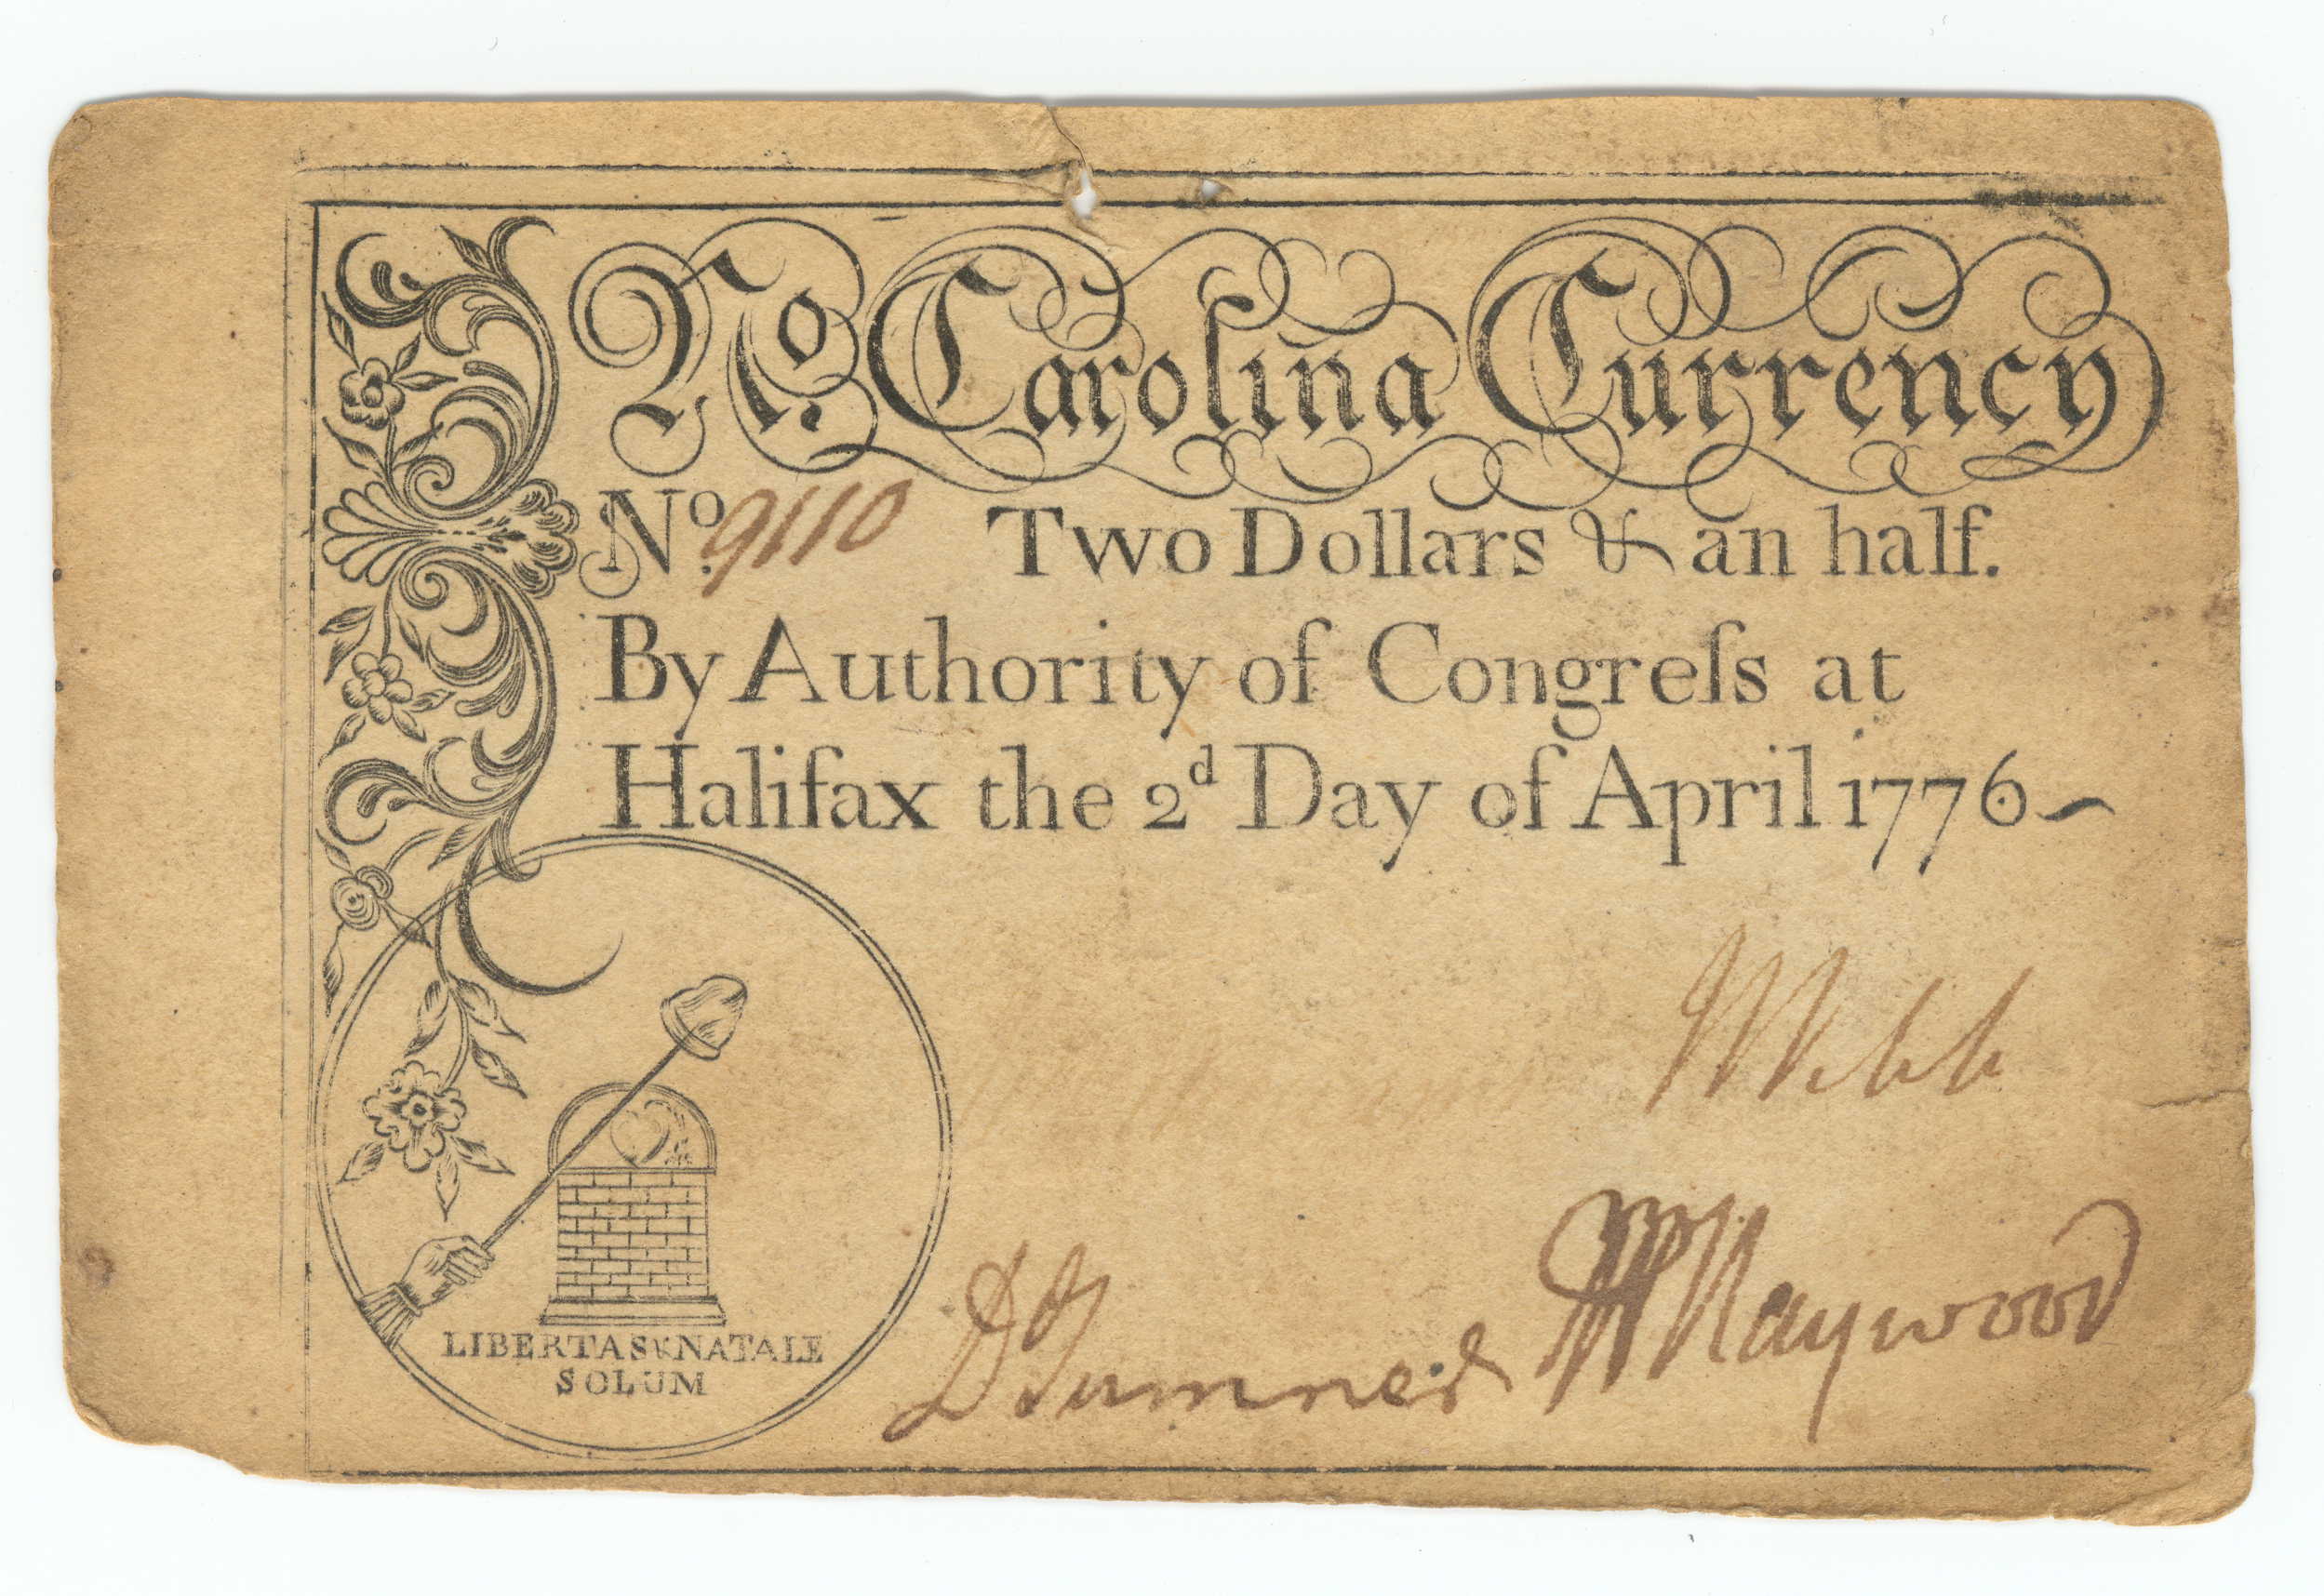 No. Carolina Currency
No. 9110 Two Dollars & an half.
By Authority of Congreſs at
Halifax the 2d Day of April 1776~
Webb
D Sumner W Haywood
LIBERTAS & NATALE
SOLUM